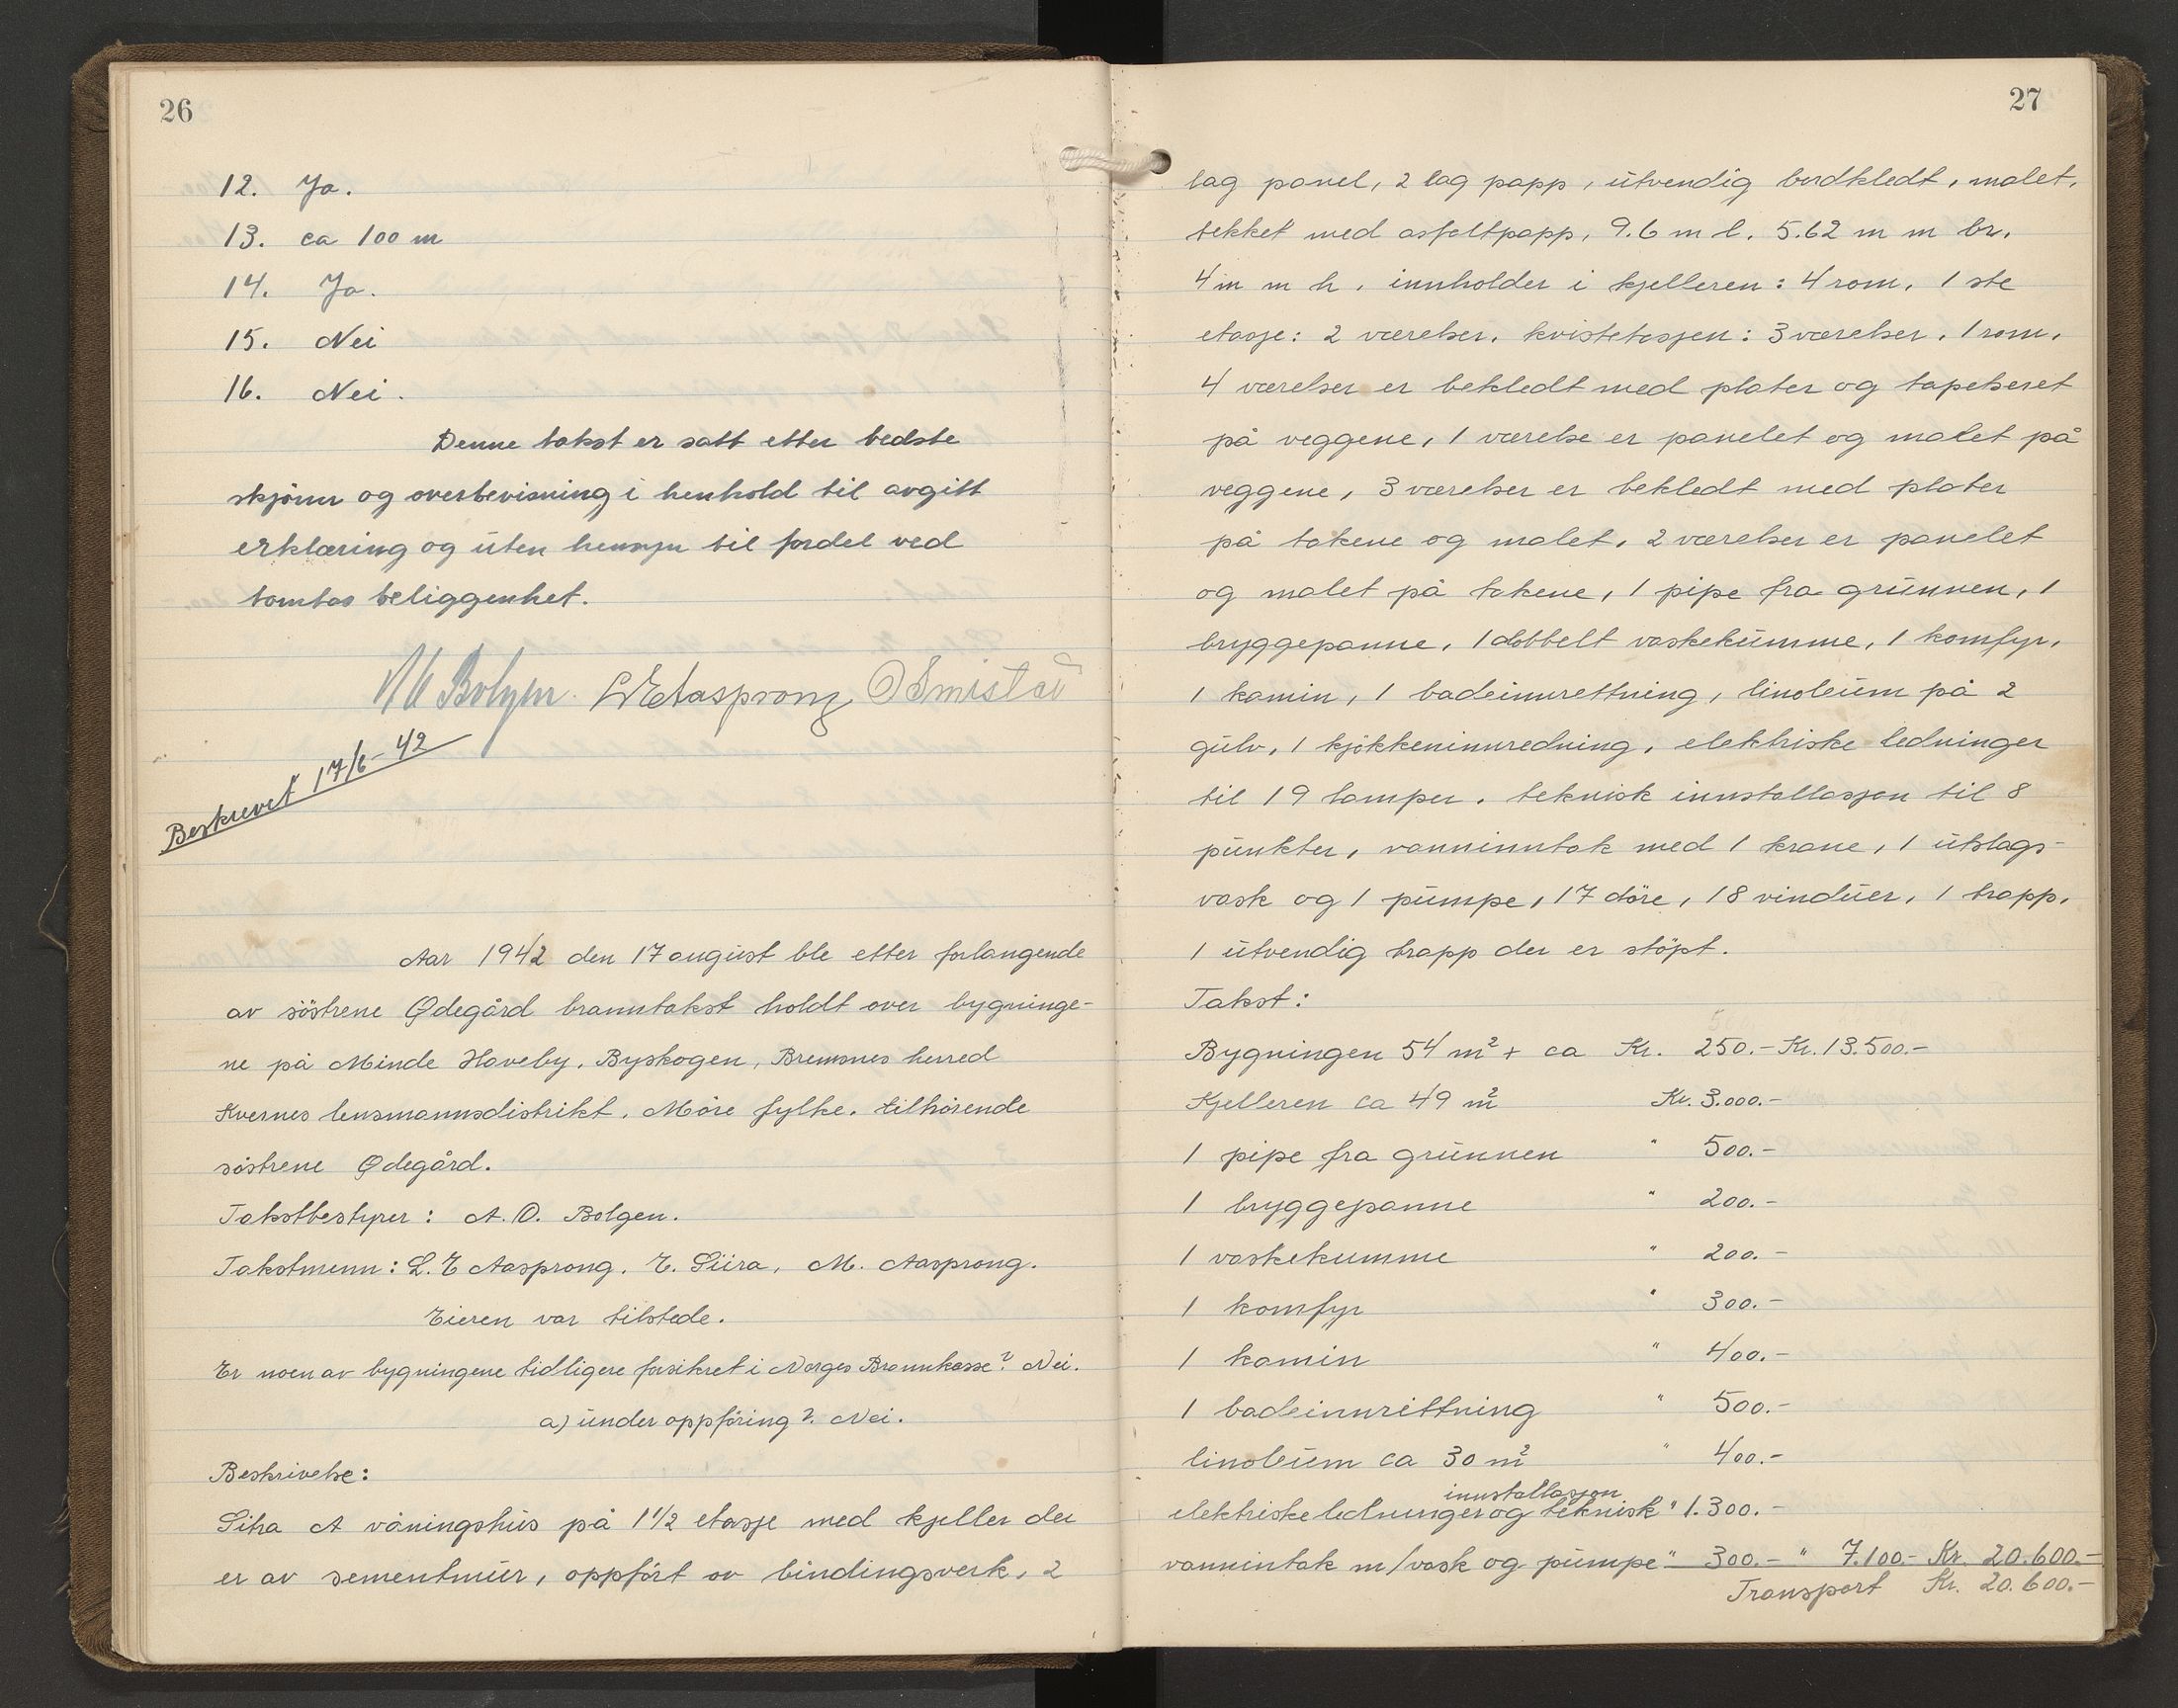 26
12. Ja.
13. ca 100 m
14. Ja.
15. Nei
16. Nei.
Denne takst er satt etter bedste
skjönn og overbevisning i henhold til avgitt
erklæring og uten hensyn til fordel ved
tomtas beliggenhet.
A O Bolgen. L E Aasprong O Smistad
Beskrevet 17/6-42
Aar 1942 den 17 august ble etter forlangende
av söstrene Ødegård branntakst holdt over bygninge-
ne på Minde Haveby, Byskogen, Bremsnes herred
Kvernes lensmannsdistrikt. Möre fylke. tilhörende
söstrene Ødegård.
Takstbestyrer: A. O. Bolgen.
Takstmenn: L. E Aasprong. E. Siira, M. Aasprong.
Eieren var tilstede.
Er noen av bygningene tidligere forsikret i Norges Brannkasse? Nei.
a) under oppföring? Nei.
Beskrivelse:
Litra A våningshus på 1 1/2 etasje med kjeller der
er av sementmur, oppfört av bindingsverk, 2
27
lag panel, 2 lag papp, utvendig bordkledt, malet,
tekket med asfaltpapp, 9.6 m l. 5.62 m m br.
4 m m h. innholder i kjelleren: 4 rom, 1 ste
etasje: 2 værelser. kvistetasjen: 3 værelser, 1 rom.
4 værelser er bekledt med plater og tapetseret
på veggene, 1 værelse er panelet og malet på
veggene, 3 værelser er bekledt med plater
på takene og malet, 2 værelser er panelet
og malet på takene, 1 pipe fra grunnen, 1
bryggepanne, 1 dobbelt vaskekumme, 1 komfyr,
1 kamin, 1 badeinnrettning, linoleum på 2
gulv, 1 kjökkeninnredning, elektriske ledninger
til 19 lamper. teknisk innstallasjon til 8
punkter, vanninntak med 1 krane, 1 utslags-
vask og 1 pumpe, 17 döre, 18 vinduer, 1 trapp,
1 utvendig trapp der er stöpt.
Takst:
Bygningen 54 m² + ca Kr. 250.- Kr. 13.500.-
Kjelleren ca 49 m² Kr. 3.000.-
1 pipe fra grunnen " 500.-
1 bryggepanne " 200.-
1 vaskekumme " 200.-
1 komfyr " 300.-
1 kamin " 400.-
1 badeinnrettning " 500.-
linoleum ca 30 m² " 400.-
innstallasjon
elektriske ledninger og teknisk " 1.300.-
vannintak m/vask og pumpe " 300.- " 7.100.- Kr. 20.600.-
Transport Kr. 20.600.-